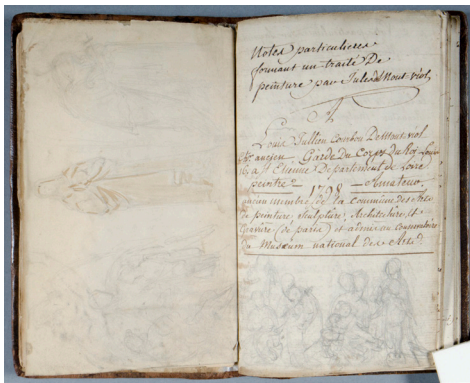 Notes particulieres
formant un traité De
peinture par Jules Mont viol
Louis Jullien
ancien Garde Du Corps du Roy Louis
16, a St Etienne Departement de Loire
peintre 1798 Amateur
ancien membre de la commune des Arts
de peinture, Sculpture, Architecture, et
Gravure (de paris) et admis au
du Museum national des Arts